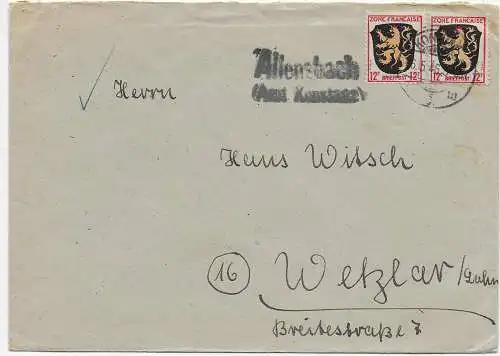 ZONE FRANÇAISE ZONE FRANÇAISE
12ᵖ BRIEFPOST 12ᵖ 12ᵖ BRIEFPOST 12ᵖ
Allensbach
(Amt Konstanz)
Herrn
Hans Witsch
(16) Wetzlar/Lahn
Breitestraße 7